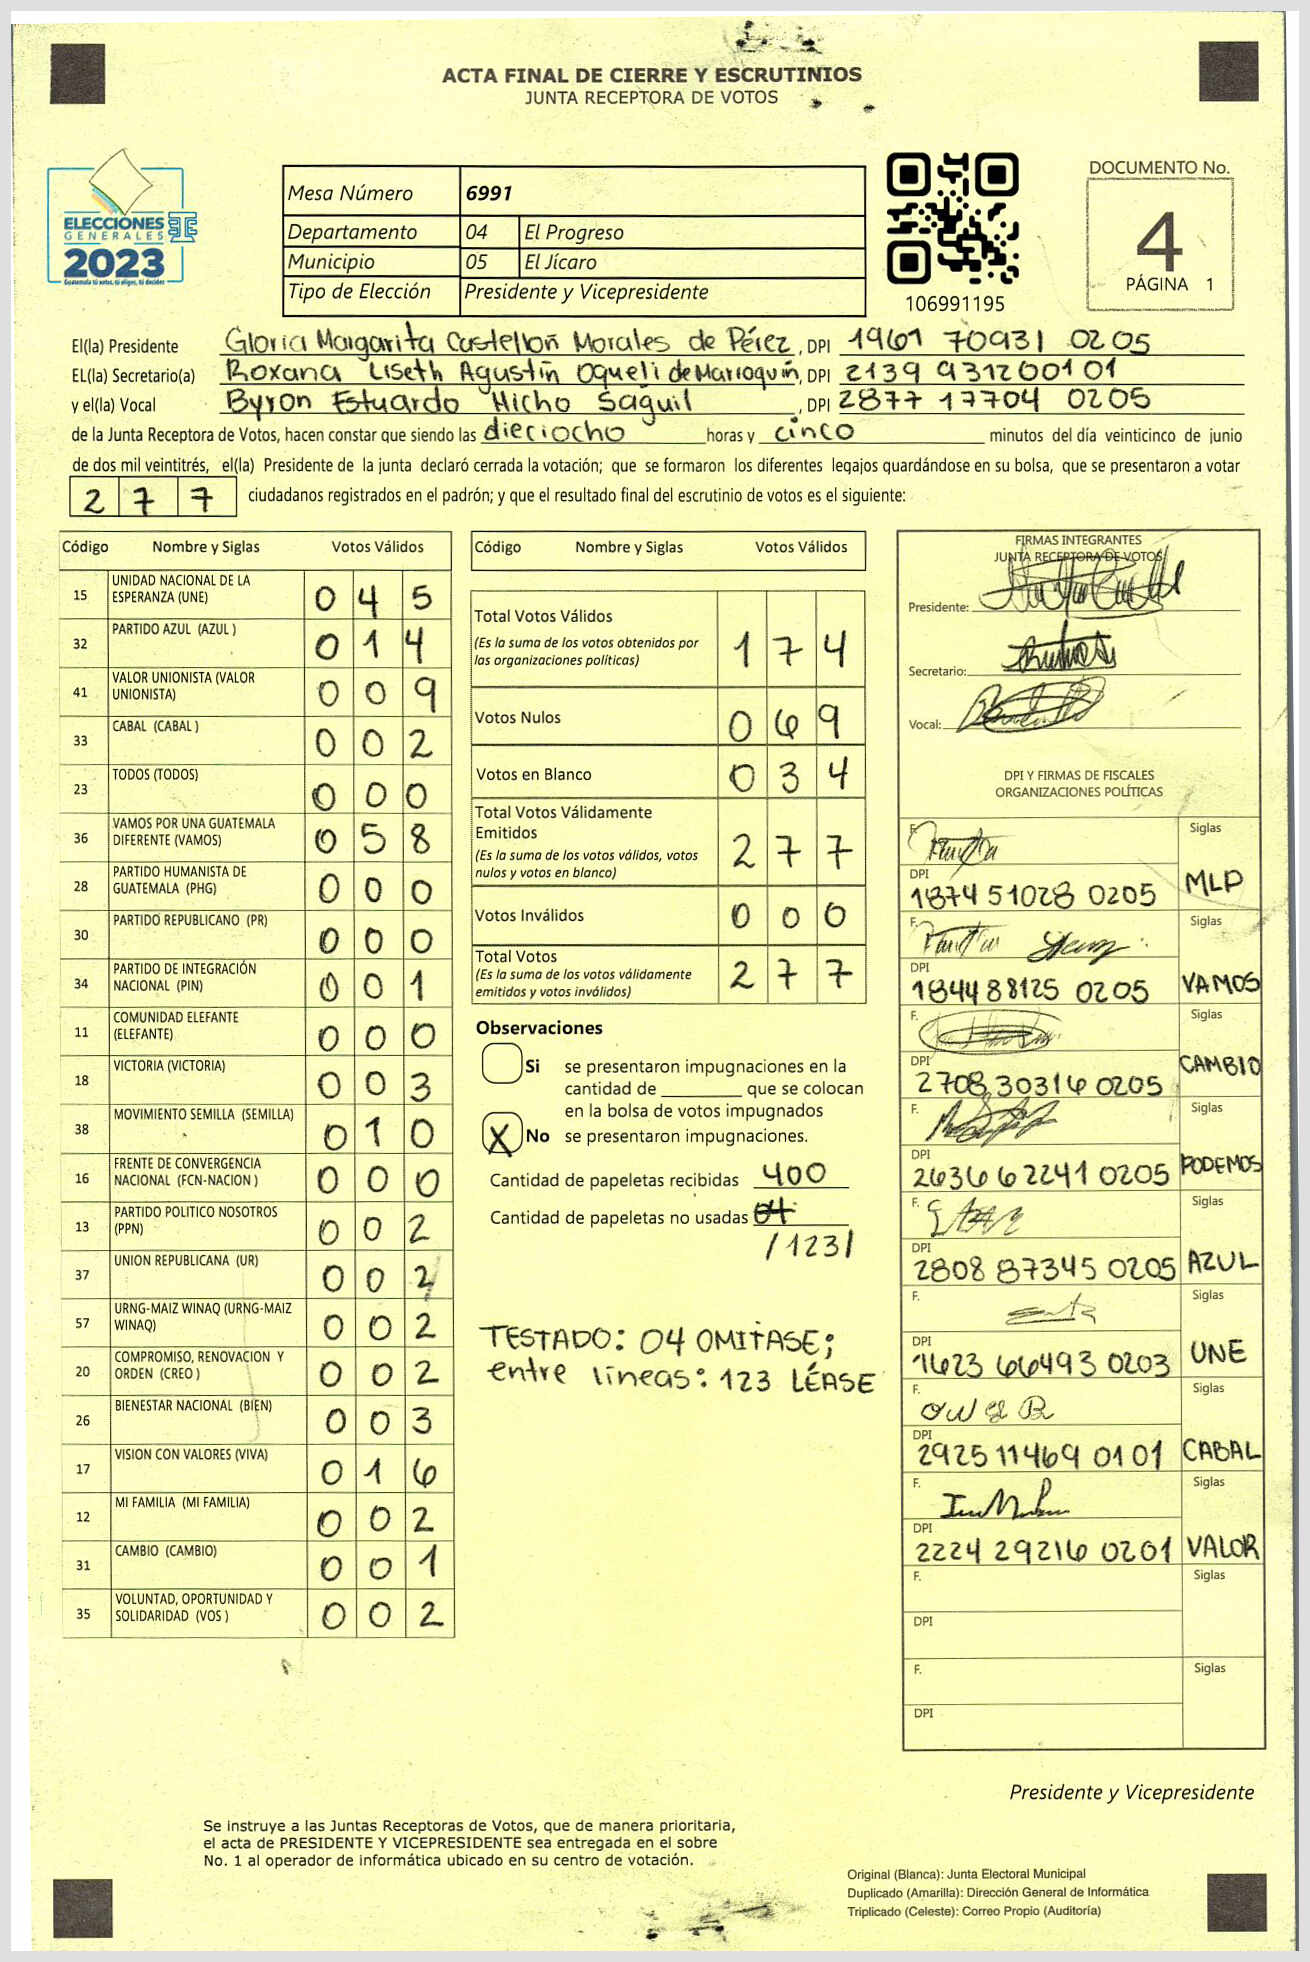 ACTA FINAL DE CIERRE Y ESCRUTINIOS
JUNTA RECEPTORA DE VOTOS
ELECCIONES
GENERALES
2023
Guatemala tú votas, tú eliges, tú decides
Mesa Número 6991
Departamento 04 El Progreso
Municipio 05 El Jícaro
Tipo de Elección Presidente y Vicepresidente
106991195
DOCUMENTO No.
4
PÁGINA 1
El(la) Presidente Gloria Margarita Castellon Morales de Pérez, DPI 1961 70931 0205
EL(la) Secretario(a) Roxana Liseth Agustín Oqueli de Marroquín, DPI 2139 93120 0101
y el(la) Vocal Byron Estuardo Hicho Saguil, DPI 2877 17704 0205
de la Junta Receptora de Votos, hacen constar que siendo las dieciocho horas y cinco minutos del día veinticinco de junio
de dos mil veintitrés, el(la) Presidente de la junta declaró cerrada la votación; que se formaron los diferentes legajos guardándose en su bolsa, que se presentaron a votar
277 ciudadanos registrados en el padrón; y que el resultado final del escrutinio de votos es el siguiente:
Código Nombre y Siglas Votos Válidos
15 UNIDAD NACIONAL DE LA ESPERANZA (UNE) 045
32 PARTIDO AZUL (AZUL ) 014
41 VALOR UNIONISTA (VALOR UNIONISTA) 009
33 CABAL (CABAL ) 002
23 TODOS (TODOS) 000
36 VAMOS POR UNA GUATEMALA DIFERENTE (VAMOS) 058
28 PARTIDO HUMANISTA DE GUATEMALA (PHG) 000
30 PARTIDO REPUBLICANO (PR) 000
34 PARTIDO DE INTEGRACIÓN NACIONAL (PIN) 001
11 COMUNIDAD ELEFANTE (ELEFANTE) 000
18 VICTORIA (VICTORIA) 003
38 MOVIMIENTO SEMILLA (SEMILLA) 010
16 FRENTE DE CONVERGENCIA NACIONAL (FCN-NACION ) 000
13 PARTIDO POLITICO NOSOTROS (PPN) 002
37 UNION REPUBLICANA (UR) 002
57 URNG-MAIZ WINAQ (URNG-MAIZ WINAQ) 002
20 COMPROMISO, RENOVACION Y ORDEN (CREO ) 002
26 BIENESTAR NACIONAL (BIEN) 003
17 VISION CON VALORES (VIVA) 016
12 MI FAMILIA (MI FAMILIA) 002
31 CAMBIO (CAMBIO) 001
35 VOLUNTAD, OPORTUNIDAD Y SOLIDARIDAD (VOS ) 002
Código Nombre y Siglas Votos Válidos
Total Votos Válidos 174
(Es la suma de los votos obtenidos por
las organizaciones políticas)
Votos Nulos 069
Votos en Blanco 034
Total Votos Válidamente
Emitidos 277
(Es la suma de los votos válidos, votos
nulos y votos en blanco)
Votos Inválidos 000
Total Votos 277
(Es la suma de los votos válidamente
emitidos y votos inválidos)
Observaciones
Si se presentaron impugnaciones en la
cantidad de ________ que se colocan
en la bolsa de votos impugnados
X No se presentaron impugnaciones.
Cantidad de papeletas recibidas 400
Cantidad de papeletas no usadas 04
/123/
TESTADO: 04 OMITASE;
entre líneas: 123 LÉASE
FIRMAS INTEGRANTES
JUNTA RECEPTORA DE VOTOS
Presidente:
Secretario:
Vocal:
DPI Y FIRMAS DE FISCALES
ORGANIZACIONES POLÍTICAS
F. Siglas
DPI 1874 51028 0205 MLP
F. Siglas
DPI 1844 88125 0205 VAMOS
F. Siglas
DPI 2708 30316 0205 CAMBIO
F. Siglas
DPI 2636 62241 0205 PODEMOS
F. Siglas
DPI 2808 87345 0205 AZUL
F. Siglas
DPI 1623 66493 0203 UNE
F. Siglas
DPI 2925 11469 0101 CABAL
F. Siglas
DPI 2224 29216 0201 VALOR
F. Siglas
DPI
F. Siglas
DPI
Presidente y Vicepresidente
Se instruye a las Juntas Receptoras de Votos, que de manera prioritaria,
el acta de PRESIDENTE Y VICEPRESIDENTE sea entregada en el sobre
No. 1 al operador de informática ubicado en su centro de votación.
Original (Blanca): Junta Electoral Municipal
Duplicado (Amarilla): Dirección General de Informática
Triplicado (Celeste): Correo Propio (Auditoría)